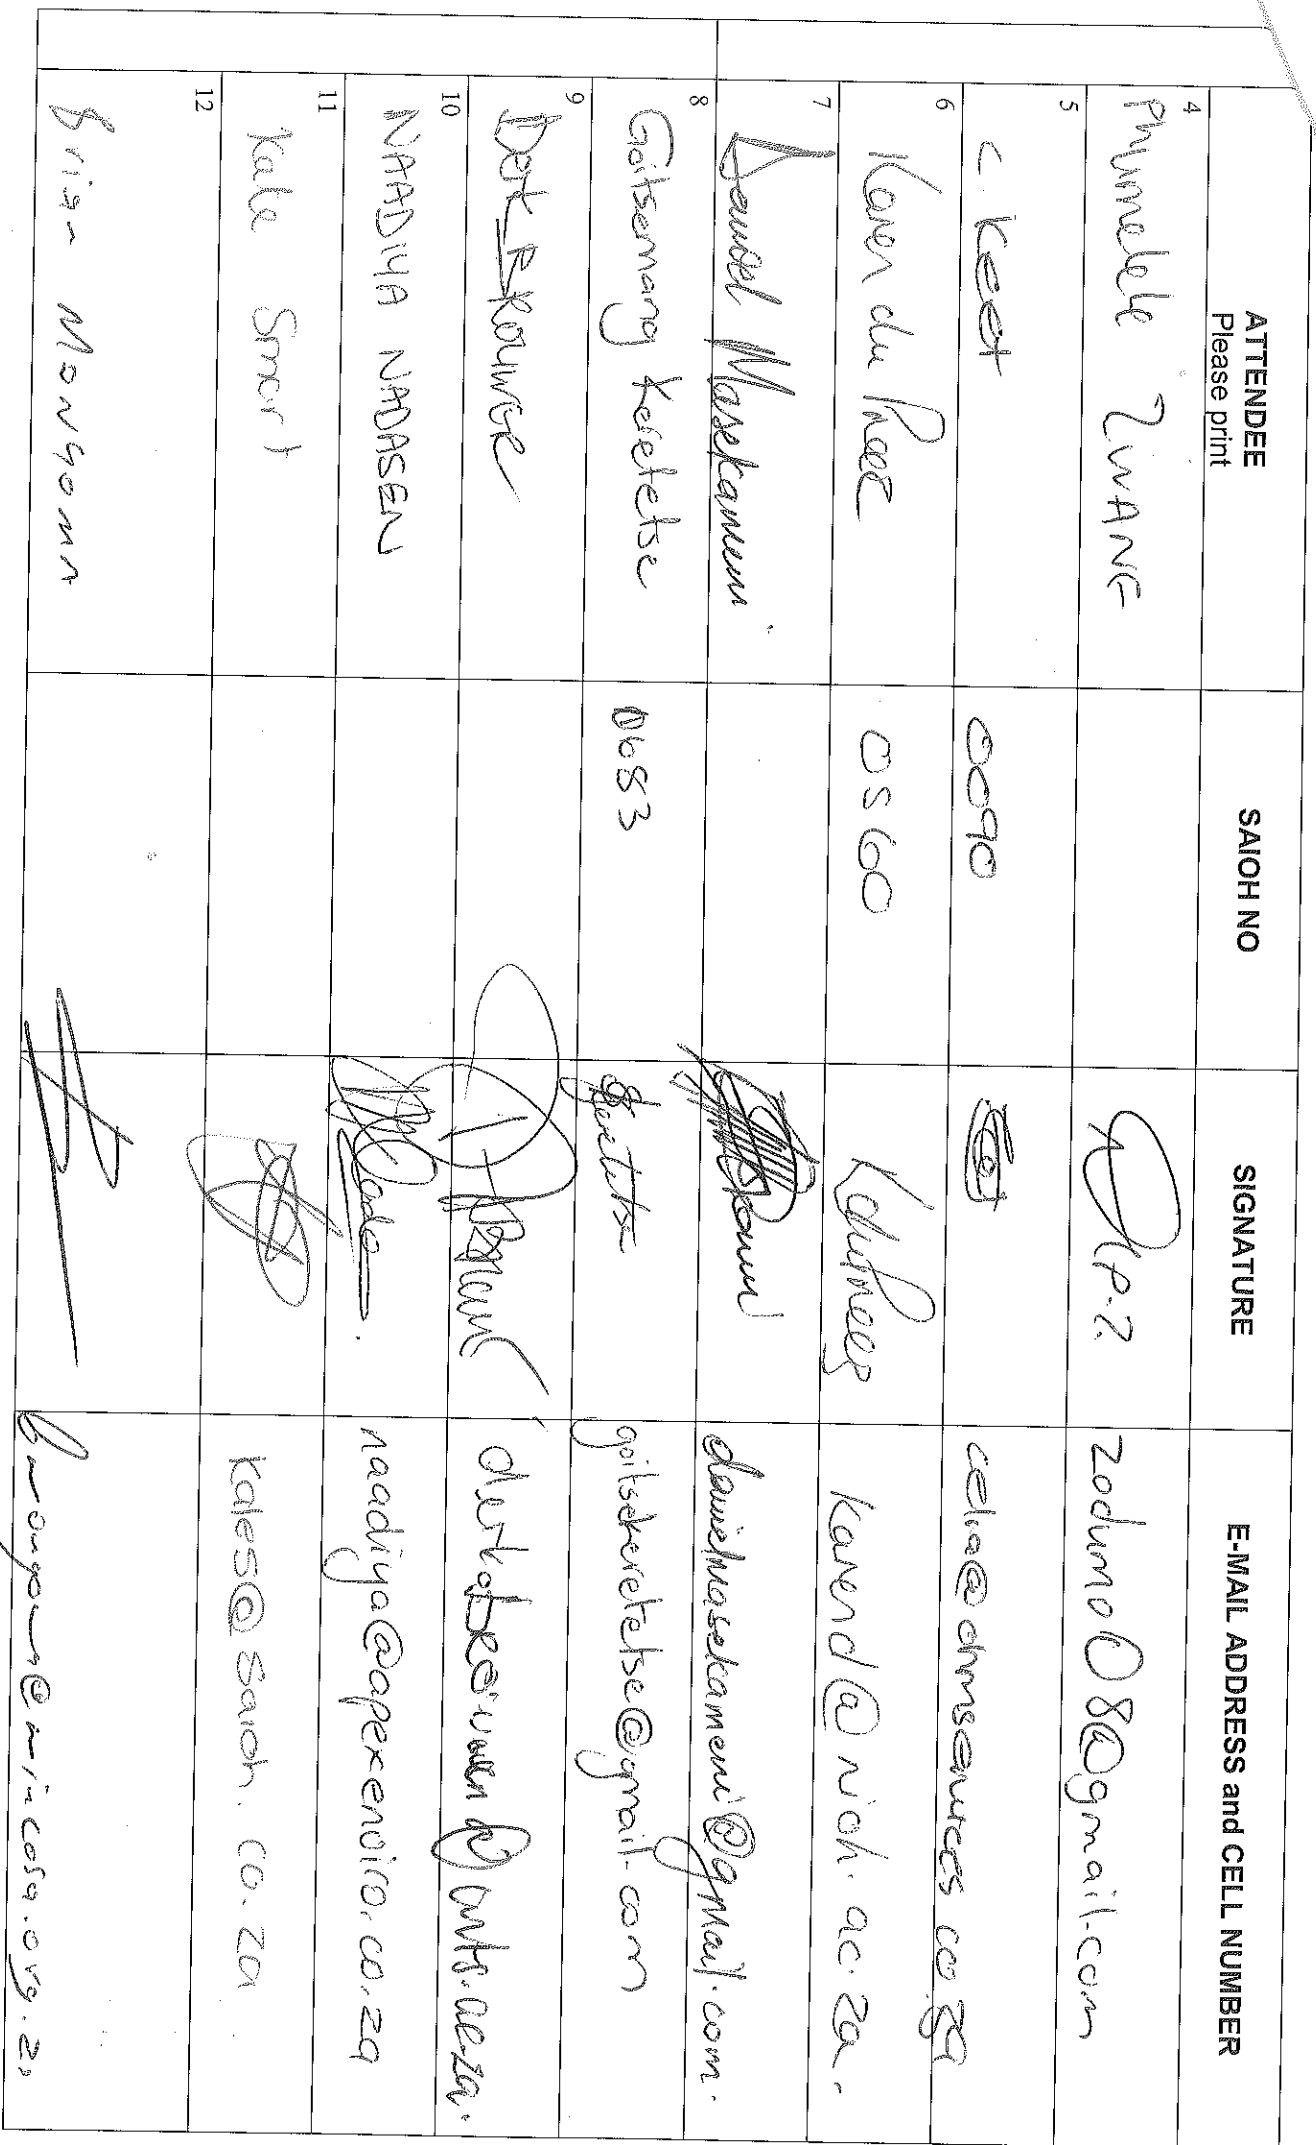 ATTENDEE SAIOH NO SIGNATURE E-MAIL ADDRESS and CELL NUMBER
Please print
4
Phumelele ZWANE P.Z. zodumo08@gmail.com
5
C. Keet 0090 celia@ohmservices.co.za
6
Karen du Preez 0560 KduPreez karend@nioh.ac.za.
7
Daniel Masekameni danielmasekameni@gmail.com.
8
Goitsemang Keretetse 0683 goitsekeretetse@gmail.com
9
Derk Brouwer derk.brouwer@wits.ac.za.
10
NAADIYA NADASEN naadiya@apexenviro.co.za
11
Kate Smart kates@saioh.co.za
12
Brian Mongoma bmongoma@mincosa.org.za